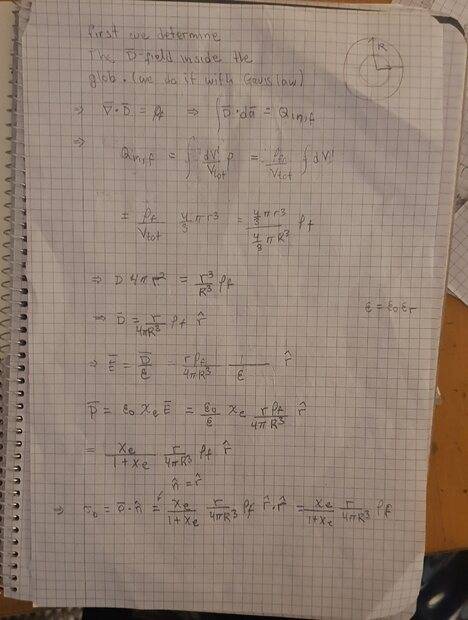 first we determine
The D-field inside the
glob. (we do it with Gauss law)
R
⇒ ∇̄·D̄ = ρf ⇒ ∫ D̄·dā = Qin,f
⇒
Qin,f = ∫ dV'/Vtot ρ = ρf/Vtot ∫ dV'
= ρf/Vtot 4/3 π r³ = (4/3 π r³)/(4/3 π R³) ρf
⇒ D 4π r² = r³/R³ ρf
ε = ε₀ εr
⇒ D̄ = r/(4πR³) ρf r̂
⇒ Ē = D̄/ε = r ρf/(4πR³) 1/ε r̂
P̄ = ε₀ χe Ē = ε₀/ε χe r ρf/(4πR³) r̂
= χe/(1+χe) r/(4πR³) ρf r̂
n̂ = r̂
⇒ σb = P̄·n̂ = χe/(1+χe) r/(4πR³) ρf r̂·r̂ = χe/(1+χe) r/(4πR³) ρf